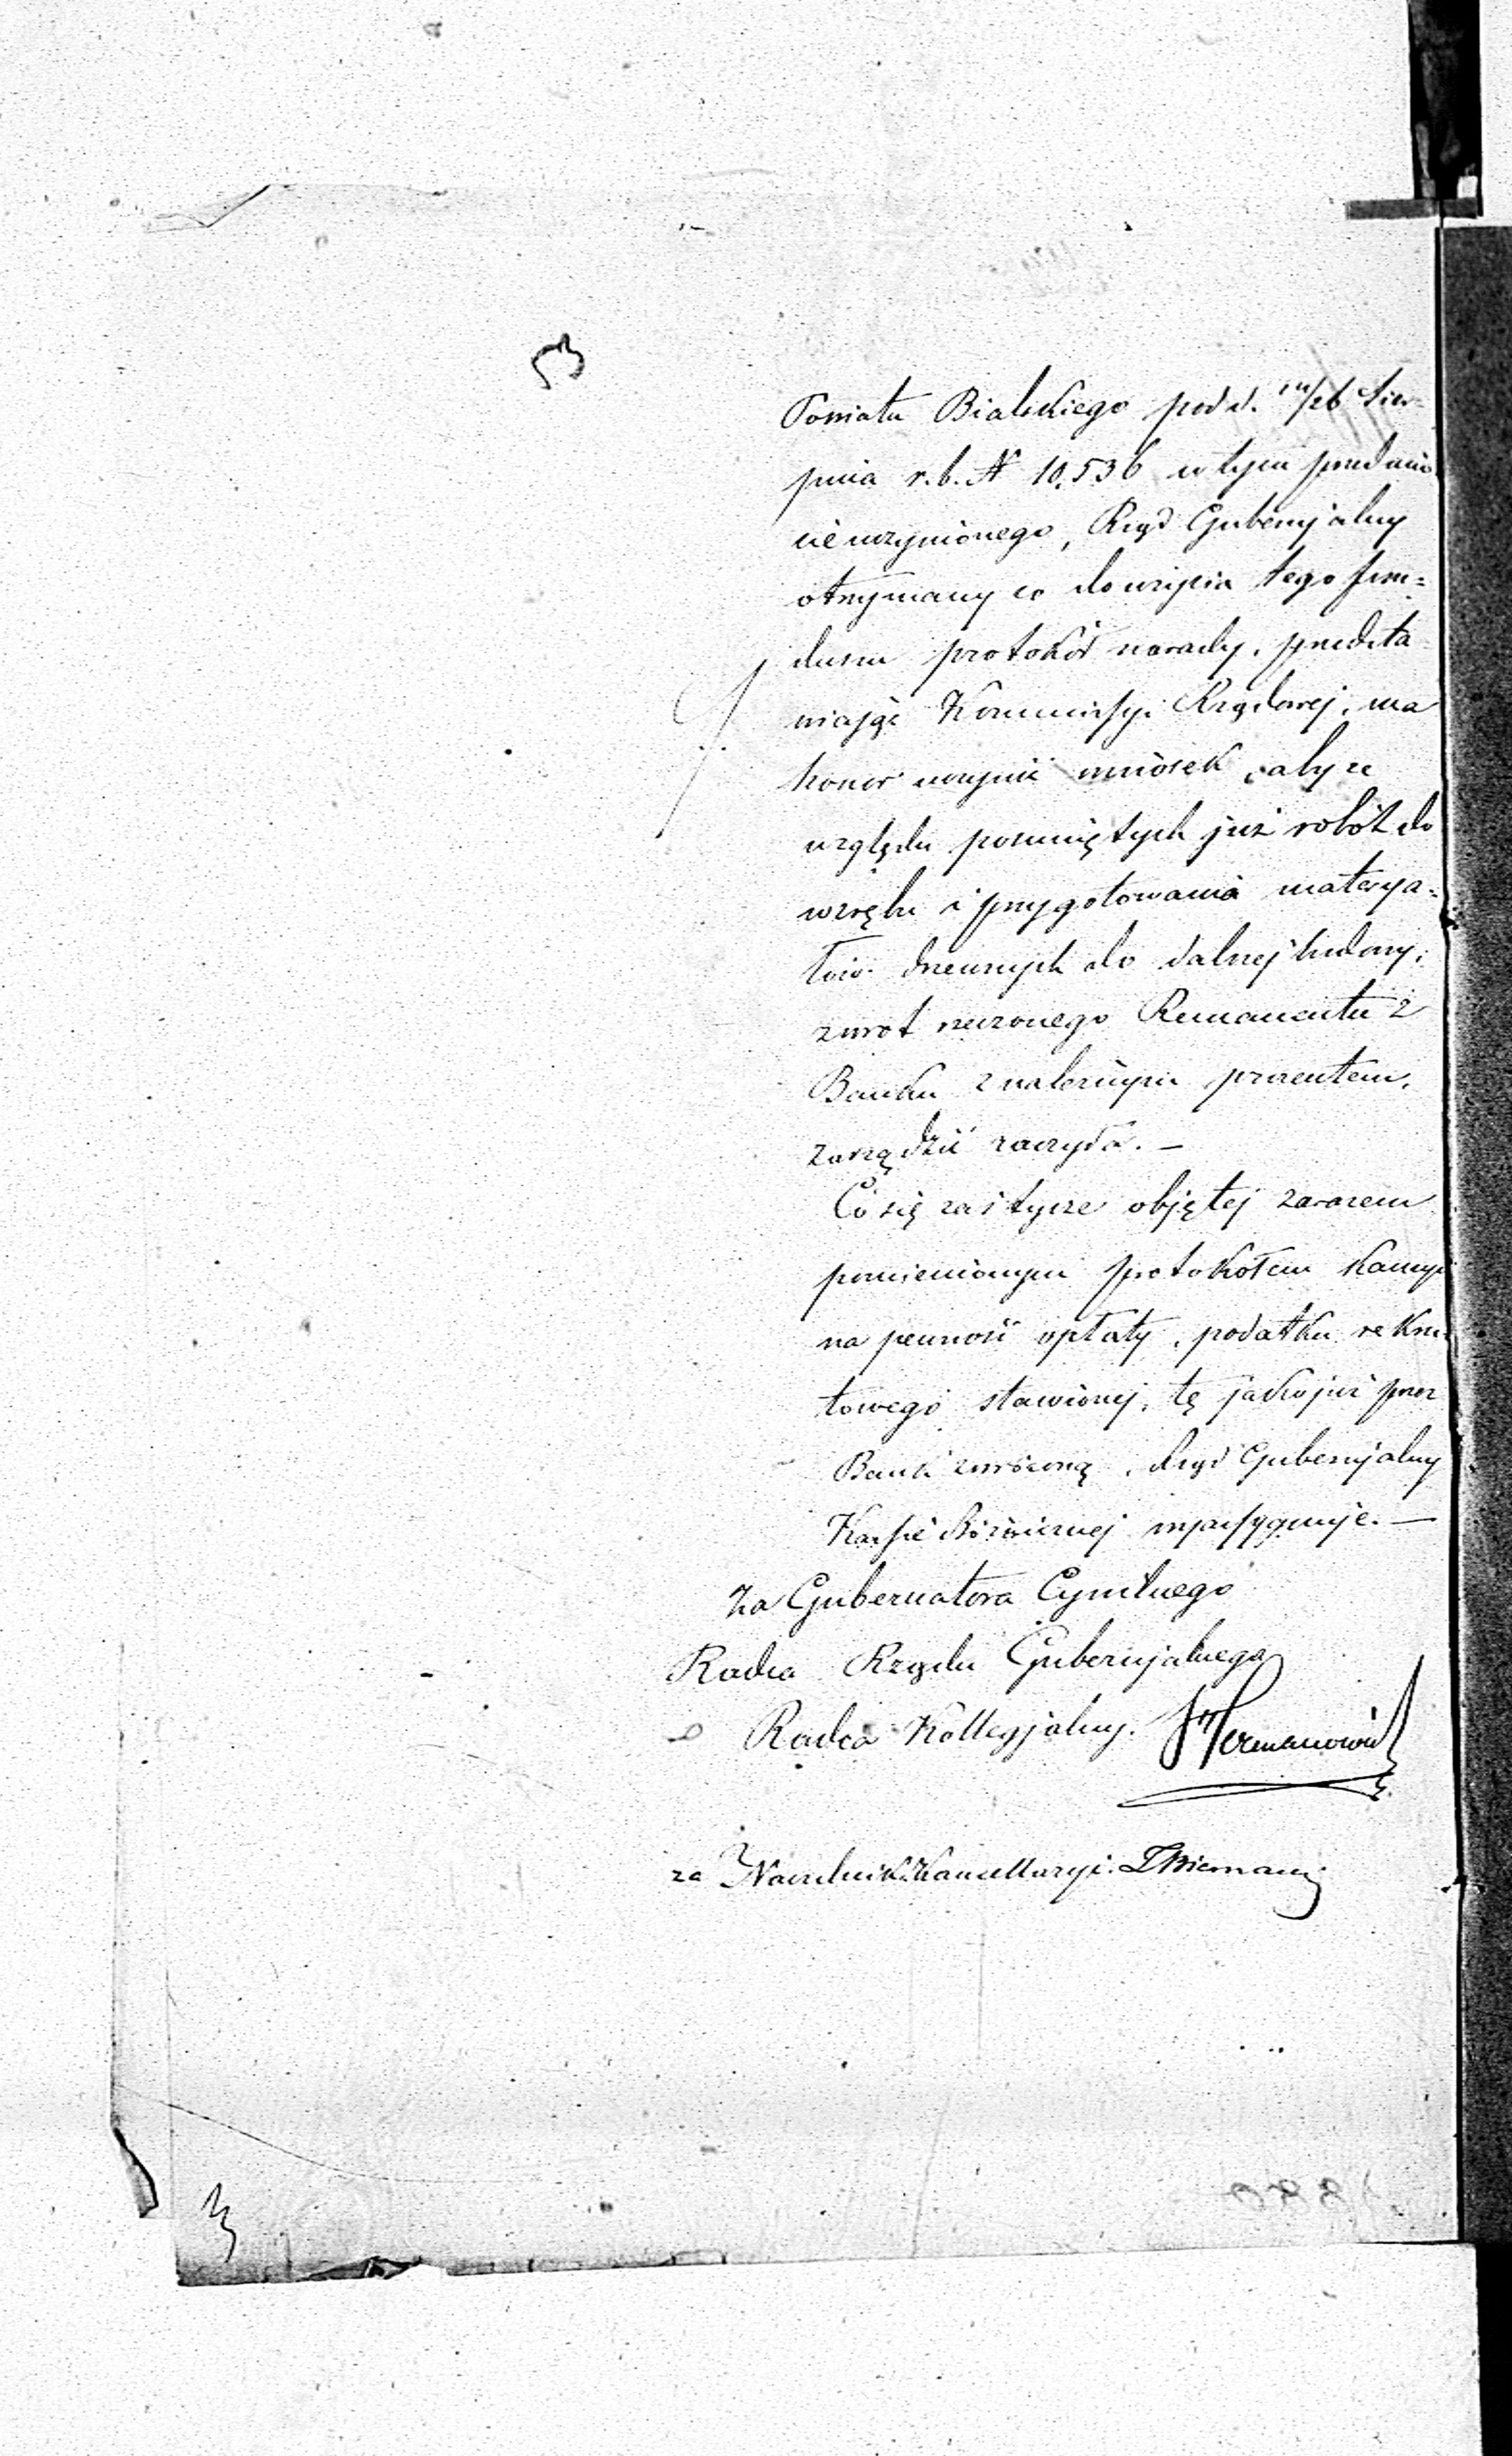 Powiatu Bialskiego pod d. 14/26 Sier-
pnia r. b. N 10,536 w tym przedmio
cie uczynionego, Rząd Gubernjalny
otrzymany co do użycia tego fun=
duszu protokół narady, przedsta
wiając Kommissyi Rządowej, ma
honor uczynić wniosek, aby ze
względu posuniętych już robót do
wrębu i przygotowania materya=
łów drzewnych do dalszej budowy,
zwrot rzeczonego Remanentu z
Banku z należnym procentem,
zarządzić raczyła. —
Co się zaś tycze objętej zarazem
pomienionym protokołem Kaucyi
na pewność opłaty, podatku rekru
towego stawionej, tę jako już przez
Bank zwróconą, Rząd Gubernjalny
Kassie Bóżniczej wyassygnuje. —
Za Gubernatora Cywilnego
Radca Rządu Gubernjalnego
Radca Kollegjalny. Hermanowicz
za Naczelnik Kancellaryi.